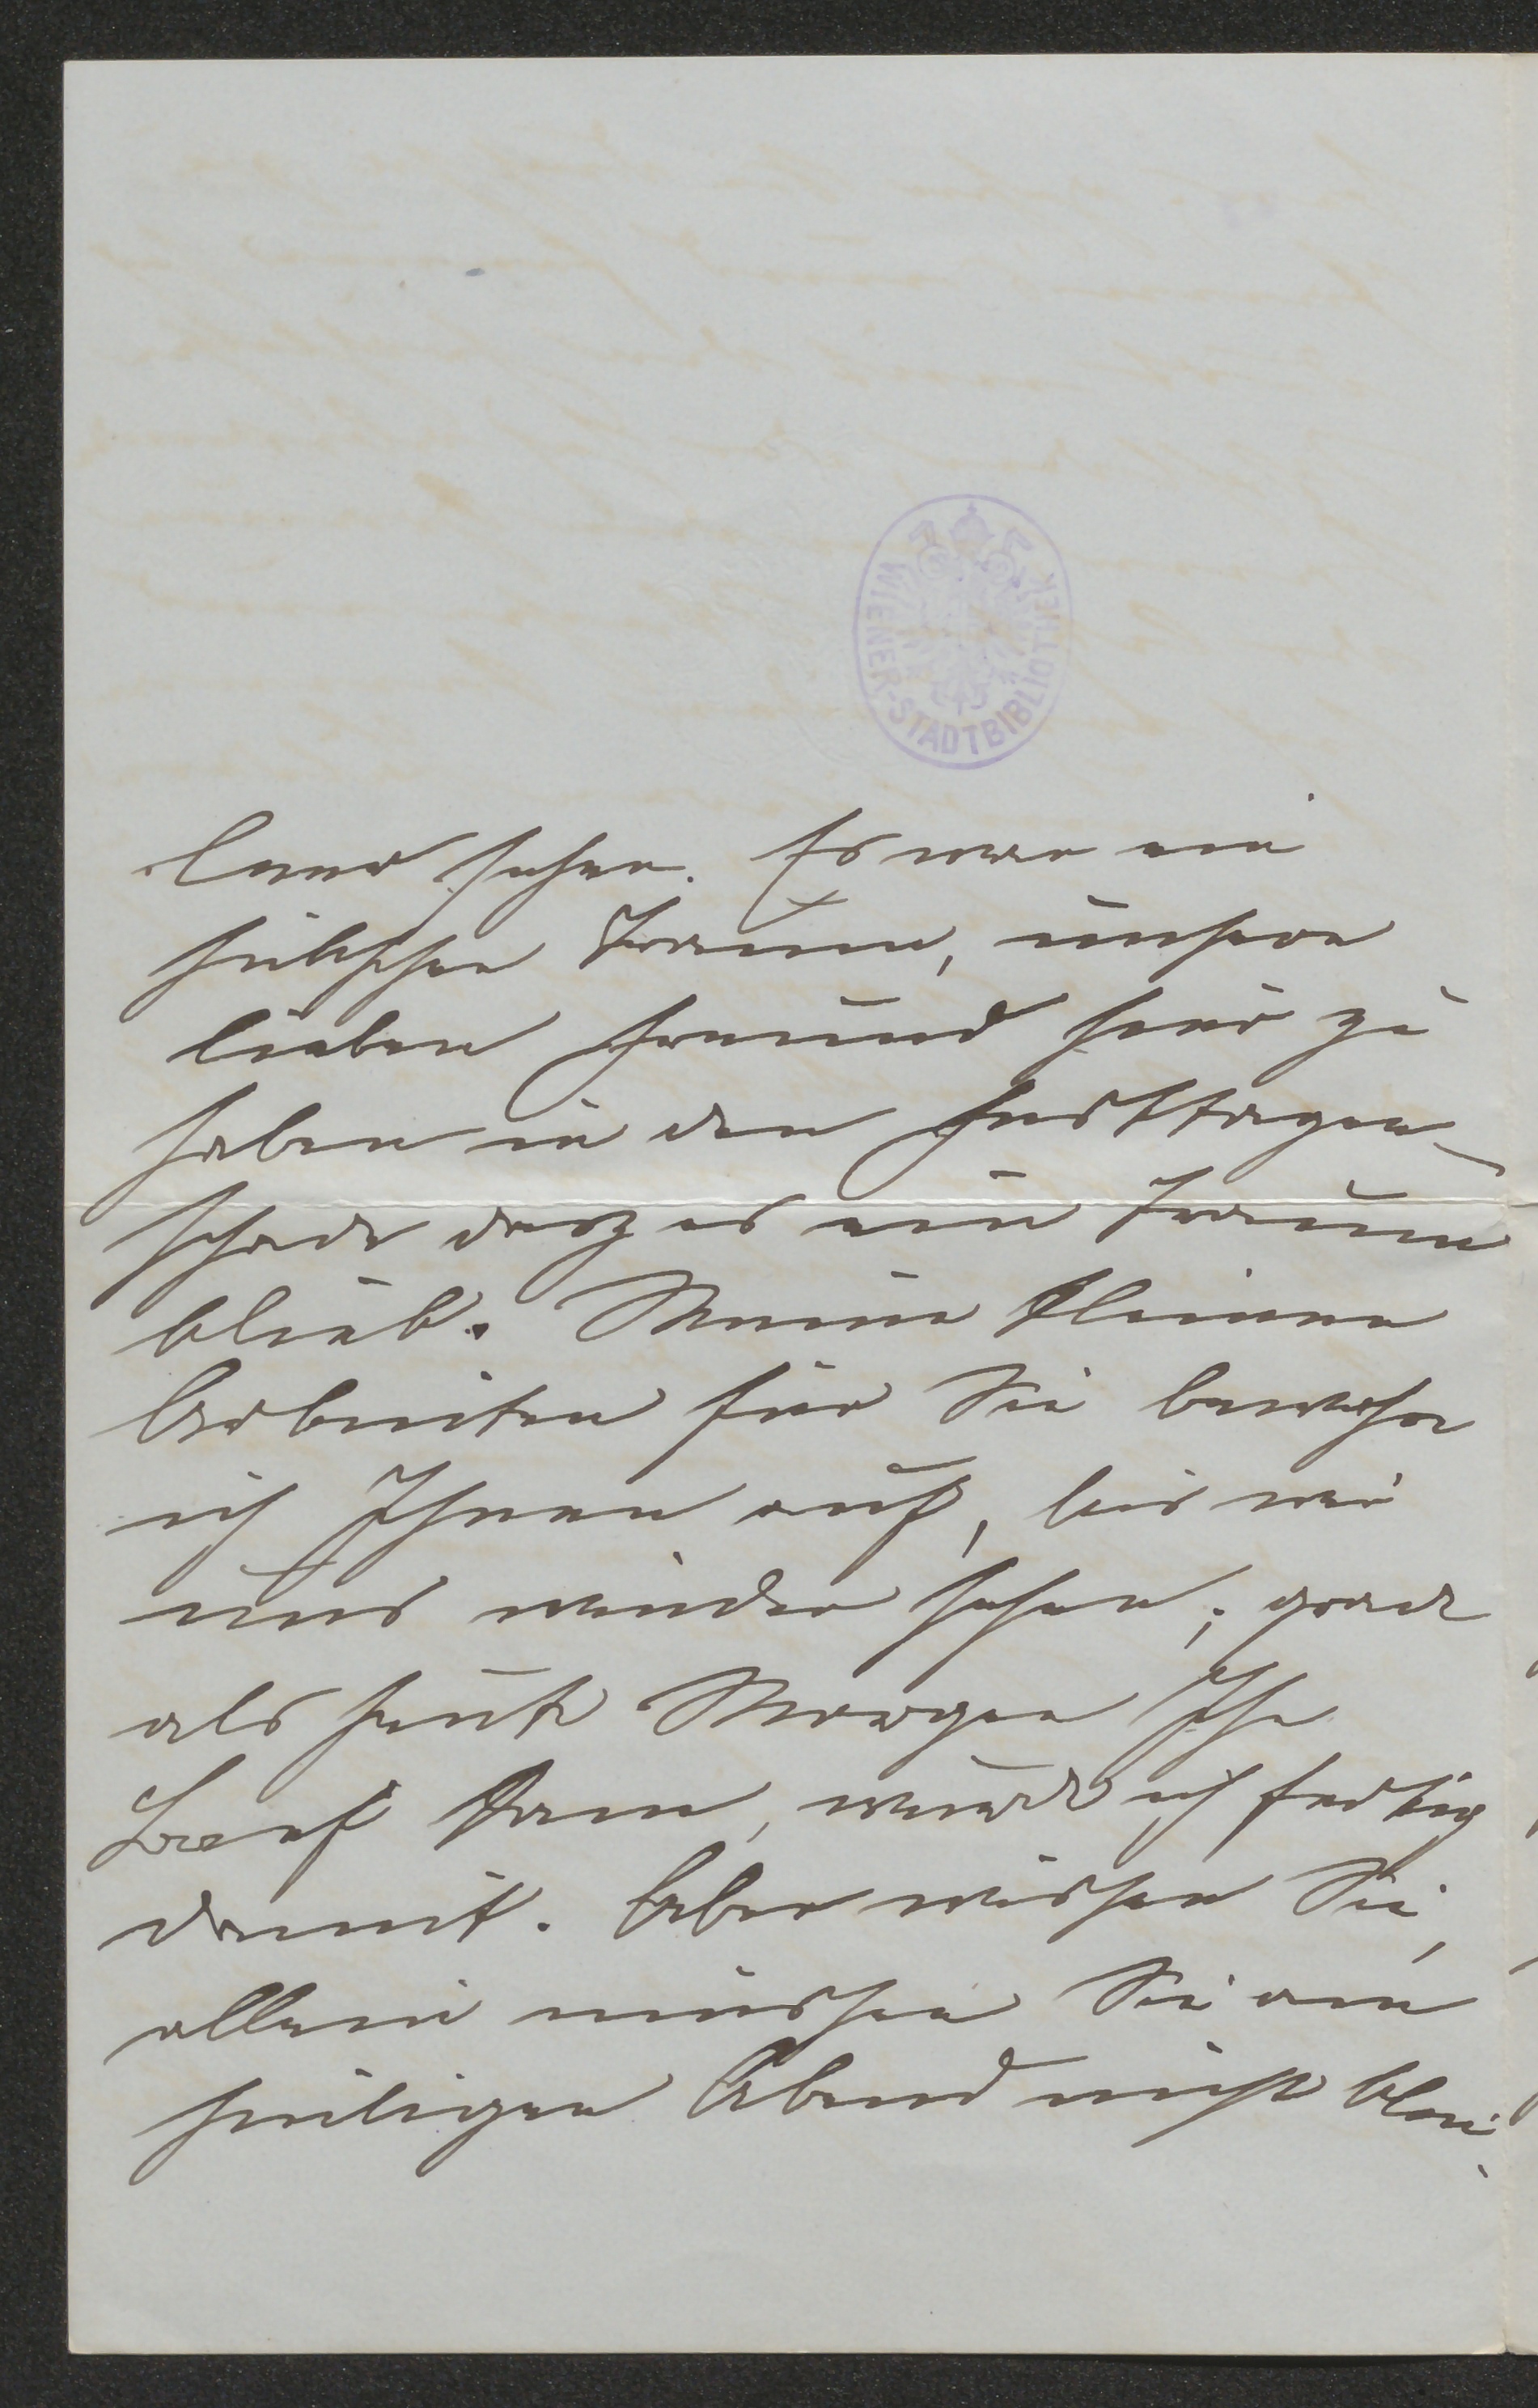 WIENER-STADTBIBLIOTHEK
land sehen. Es war ein
hübscher Traum, unsern
lieben Freund hier zu
haben in den Festtagen –
schade dasz es ein Traum
blieb. Meine kleinen
Arbeiten für Sie bewahre
ich Ihnen auf, bis wir
uns wieder sehen; grade
als heute Morgen Ihr
Brief kam, wurde ich fertig
damit. Aber wissen Sie,
allein müssen Sie am
heiligen Abend nicht blei-